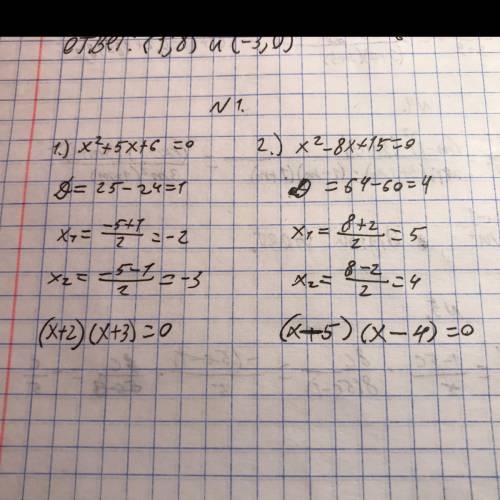 ответ: (1,8) и (-3,0)
N1.
1.) x²+5x+6=0
D=25-24=1
x₁=\frac{-5+1}{2}=-2
x₂=\frac{-5-1}{2}=-3
(x+2)(x+3)=0
2.) x²-8x+15=0
D=64-60=4
x₁=\frac{8+2}{2}=5
x₂=\frac{8-2}{2}=4
(x-5)(x-4)=0